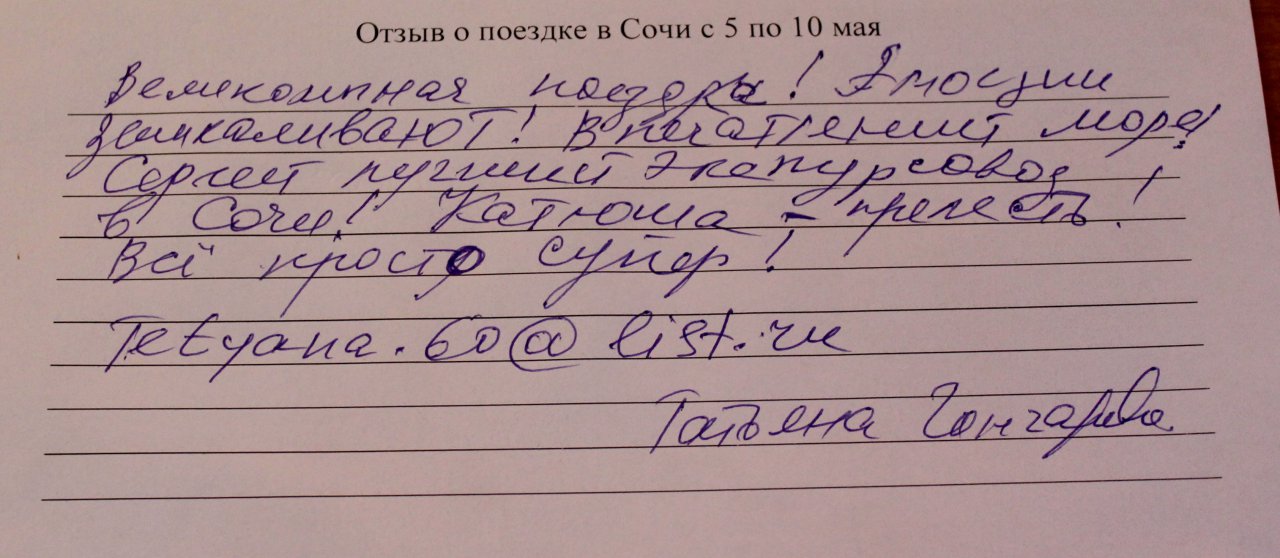 Отзыв о поездке в Сочи с 5 по 10 мая
Великолепная поездка! Эмоции
зашкаливают! Впечатлений море!
Сергей лучший экскурсовод
в Сочи! Катюша – прелесть!
Всё просто супер!
Tetyana.60@list.ru
Татьяна Гончарова